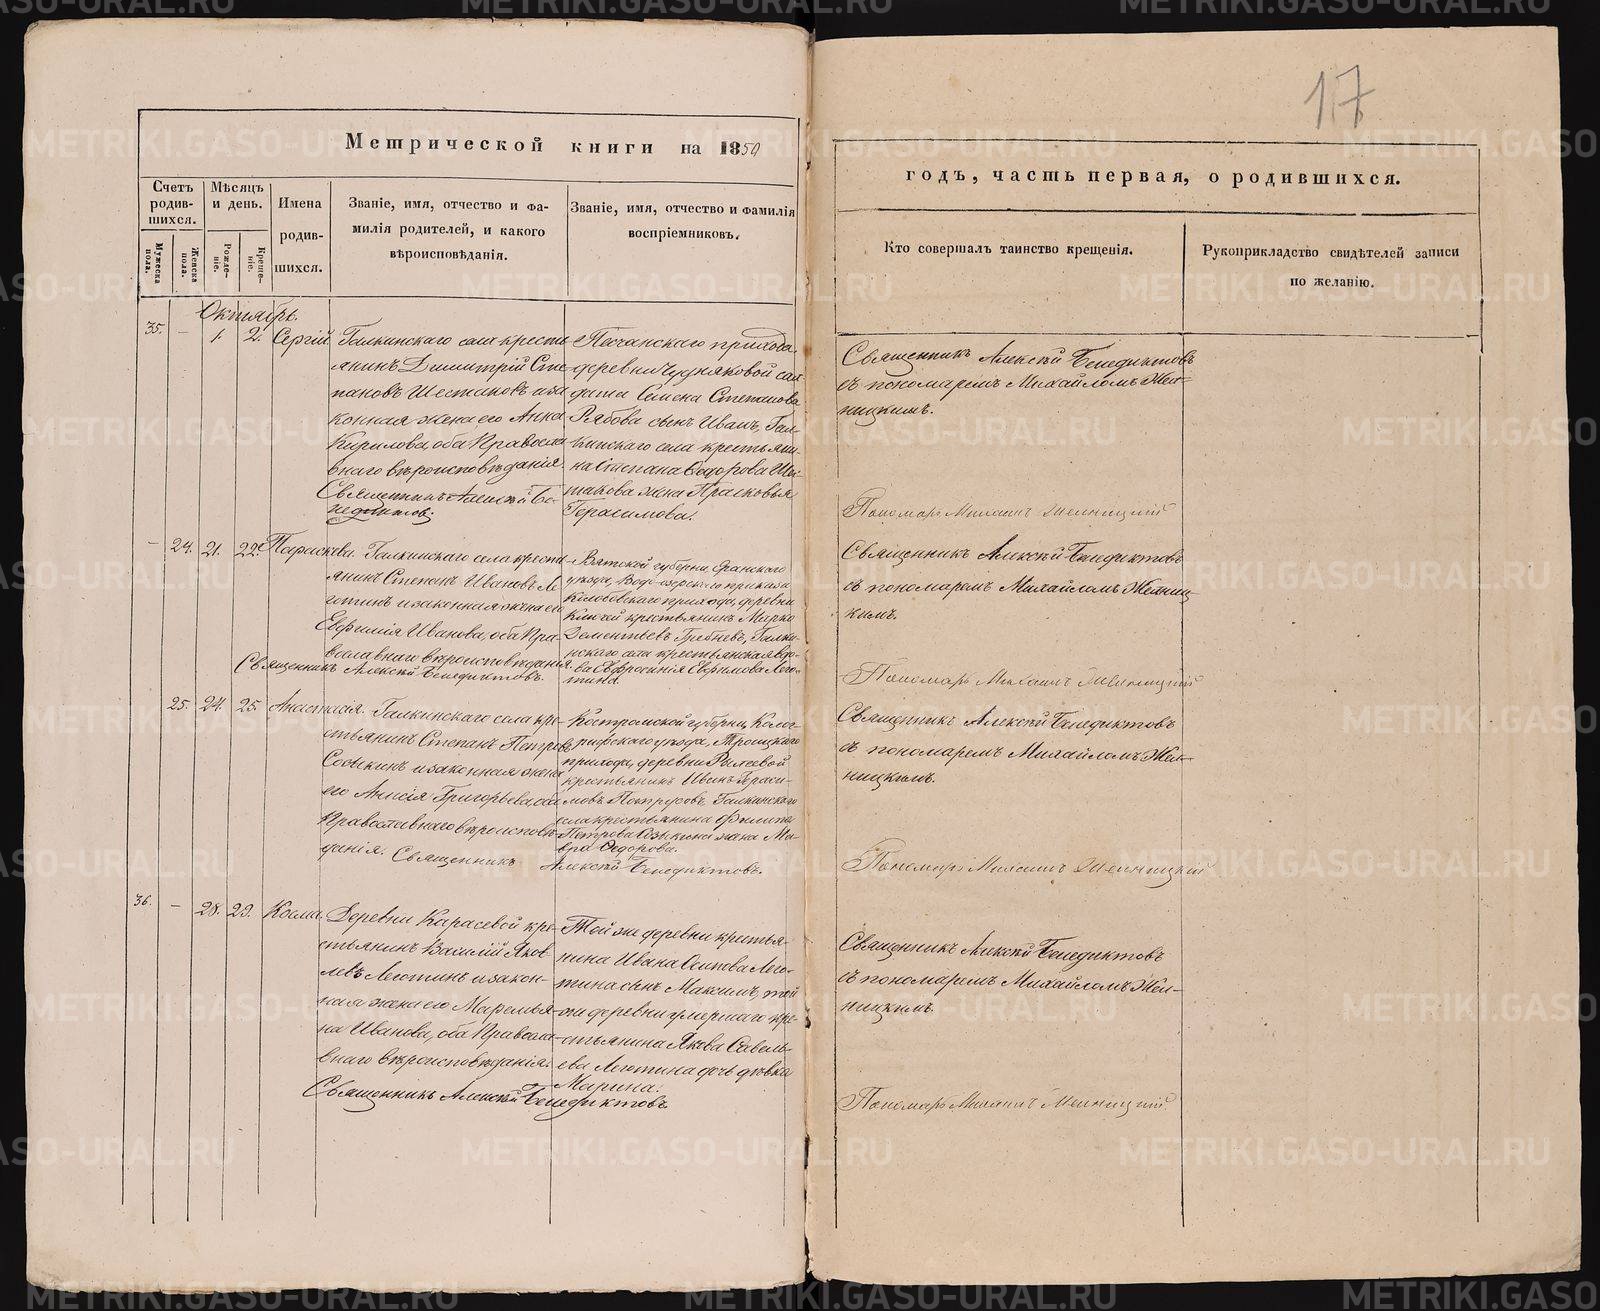 17
Метрической книги на 1859
годъ, часть первая, о родившихся.
Счетъ родив-шихся.
Мужеска пола.
Женска пола.
Мѣсяцъ и день.
Рожде-ніе.
Креще-ніе.
Имена
родив-
шихся.
Званіе, имя, отчество и фа-
милія родителей, и какого
вѣроисповѣданія.
Званіе, имя, отчество и фамилія
воспріемниковъ.
Кто совершалъ таинство крещенія.
Рукоприкладство свидѣтелей записи
по желанію.
Октябрь.
35. — 1. 2. Сергій
Галкинскаго села кресть
янинъ Димитрій Сте
пановъ Шестаковъ и за
конная жена его Анна
Кирилова, оба Правосла
внаго вѣроисповѣданія.
Священникъ Алексѣй Бе-
недиктовъ.
Песчанскаго прихода,
деревни Чудняковой сол
дата Семена Степанова
Рябова сынъ Иванъ, Гал-
кинскаго села крестьяни-
на Степана Ѳедорова Ше-
такова жена Прасковья
Герасимова.
Священникъ Алексѣй Бенедиктовъ
съ пономаремъ Михайломъ Жел-
ницкимъ.
Пономарь Михаилъ
— 24. 21. 22. Параскева.
Галкинскаго села кресть
янинъ Степанъ Ивановъ Ле
готинъ и законная жена его
Евфимія Иванова, оба Пра-
вославнаго вѣроисповѣданія.
Священникъ Алексѣй Бенедиктовъ.
Вятской губерніи
уѣзда, приказа
прихода, деревни
крестьянинъ Марко
Дементьевъ Гребневъ, Галки-
нскаго села крестьянская вдо-
ва Евфросинія Евфимова Лего-
тина.
Священникъ Алексѣй Бенедиктовъ
съ пономаремъ Михайломъ Желниц-
кимъ.
Пономарь Михаилъ
25. 24. 25. Анастасія.
Галкинскаго села кре-
стьянинъ Степанъ Петровъ
и законная жена
его Анисія Григорьева, оба
Православнаго вѣроисповѣ-
данія. Священникъ Алексѣй Бенедиктовъ.
Костромской губерніи, Колог-
ривскаго уѣзда, Троицкаго
прихода, деревни
крестьянинъ Иванъ Гераси-
мовъ Галкинскаго
села крестьянина Филипа
Петрова жена Ма-
вра Ѳедорова.
Священникъ Алексѣй Бенедиктовъ
съ пономаремъ Михайломъ Жел-
ницкимъ.
Пономарь Михаилъ
36. — 28. 29. Косма.
Деревни Карасевой кре-
стьянинъ Василій Яков
левъ Леготинъ и закон-
ная жена его Маремья-
на Иванова, оба Правосла-
внаго вѣроисповѣданія.
Священникъ Алексѣй Бенедиктовъ
Той же деревни крестья-
нина Ивана Осипова Лего-
тина сынъ Максимъ, той
же деревни умершаго кре-
стьянина Якова Савель-
ева Леготина дочь дѣвка
Марина.
Священникъ Алексѣй Бенедиктовъ
съ пономаремъ Михайломъ Жел-
ницкимъ.
Пономарь Михаилъ
METRIKI.GASO-URAL.RU